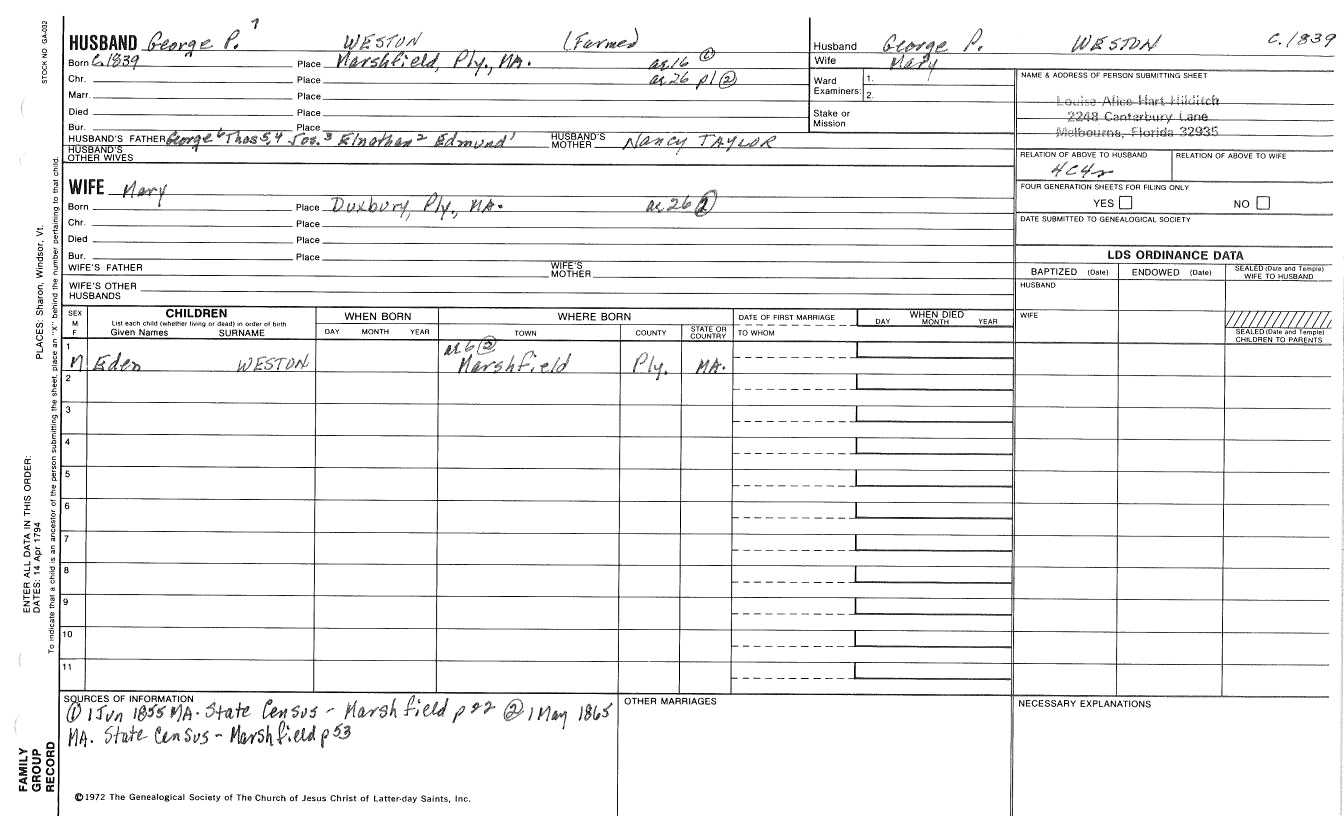 STOCK NO. GA-032
HUSBAND George P. 7 WESTON (Farmed)
Born C.1839 Place Marshfield, Ply., MA. ae 16 ①
Chr. Place ae 26 p1 ②
Marr. Place
Died Place
Bur. Place
HUSBAND'S FATHER George 6 Thos 5,4 Jos. 3 Elnathan 2 Edmund 1 HUSBAND'S MOTHER Nancy TAYLOR
HUSBAND'S OTHER WIVES
WIFE Mary
Born Place Duxbury, Ply., MA. ae 26 ②
Chr. Place
Died Place
Bur. Place
WIFE'S FATHER WIFE'S MOTHER
WIFE'S OTHER HUSBANDS
Husband George P. WESTON C.1839
Wife Mary
Ward Examiners: 1.
2.
Stake or Mission
NAME & ADDRESS OF PERSON SUBMITTING SHEET
Louise Alice Hart Hilditch
2248 Canterbury Lane
Melbourne, Florida 32935
RELATION OF ABOVE TO HUSBAND RELATION OF ABOVE TO WIFE
4C4r
FOUR GENERATION SHEETS FOR FILING ONLY
YES NO
DATE SUBMITTED TO GENEALOGICAL SOCIETY
LDS ORDINANCE DATA
BAPTIZED (Date) ENDOWED (Date) SEALED (Date and Temple) WIFE TO HUSBAND
HUSBAND
WIFE
SEALED (Date and Temple) CHILDREN TO PARENTS
SEX M F CHILDREN WHEN BORN WHERE BORN DATE OF FIRST MARRIAGE WHEN DIED
List each child (whether living or dead) in order of birth
Given Names SURNAME DAY MONTH YEAR TOWN COUNTY STATE OR COUNTRY TO WHOM DAY MONTH YEAR
1 ae 6 ②
M Eden WESTON Marshfield Ply. MA.
2
3
4
5
6
7
8
9
10
11
SOURCES OF INFORMATION
① 1 Jun 1855 MA. State Census - Marshfield p 22 ② 1 May 1865
MA. State Census - Marshfield p 53
OTHER MARRIAGES
NECESSARY EXPLANATIONS
©1972 The Genealogical Society of The Church of Jesus Christ of Latter-day Saints, Inc.
PLACES: Sharon, Windsor, Vt.
ENTER ALL DATA IN THIS ORDER:
DATES: 14 Apr 1794
To indicate that a child is an ancestor of the person submitting the sheet, place an "X" behind the number pertaining to that child.
FAMILY
GROUP
RECORD